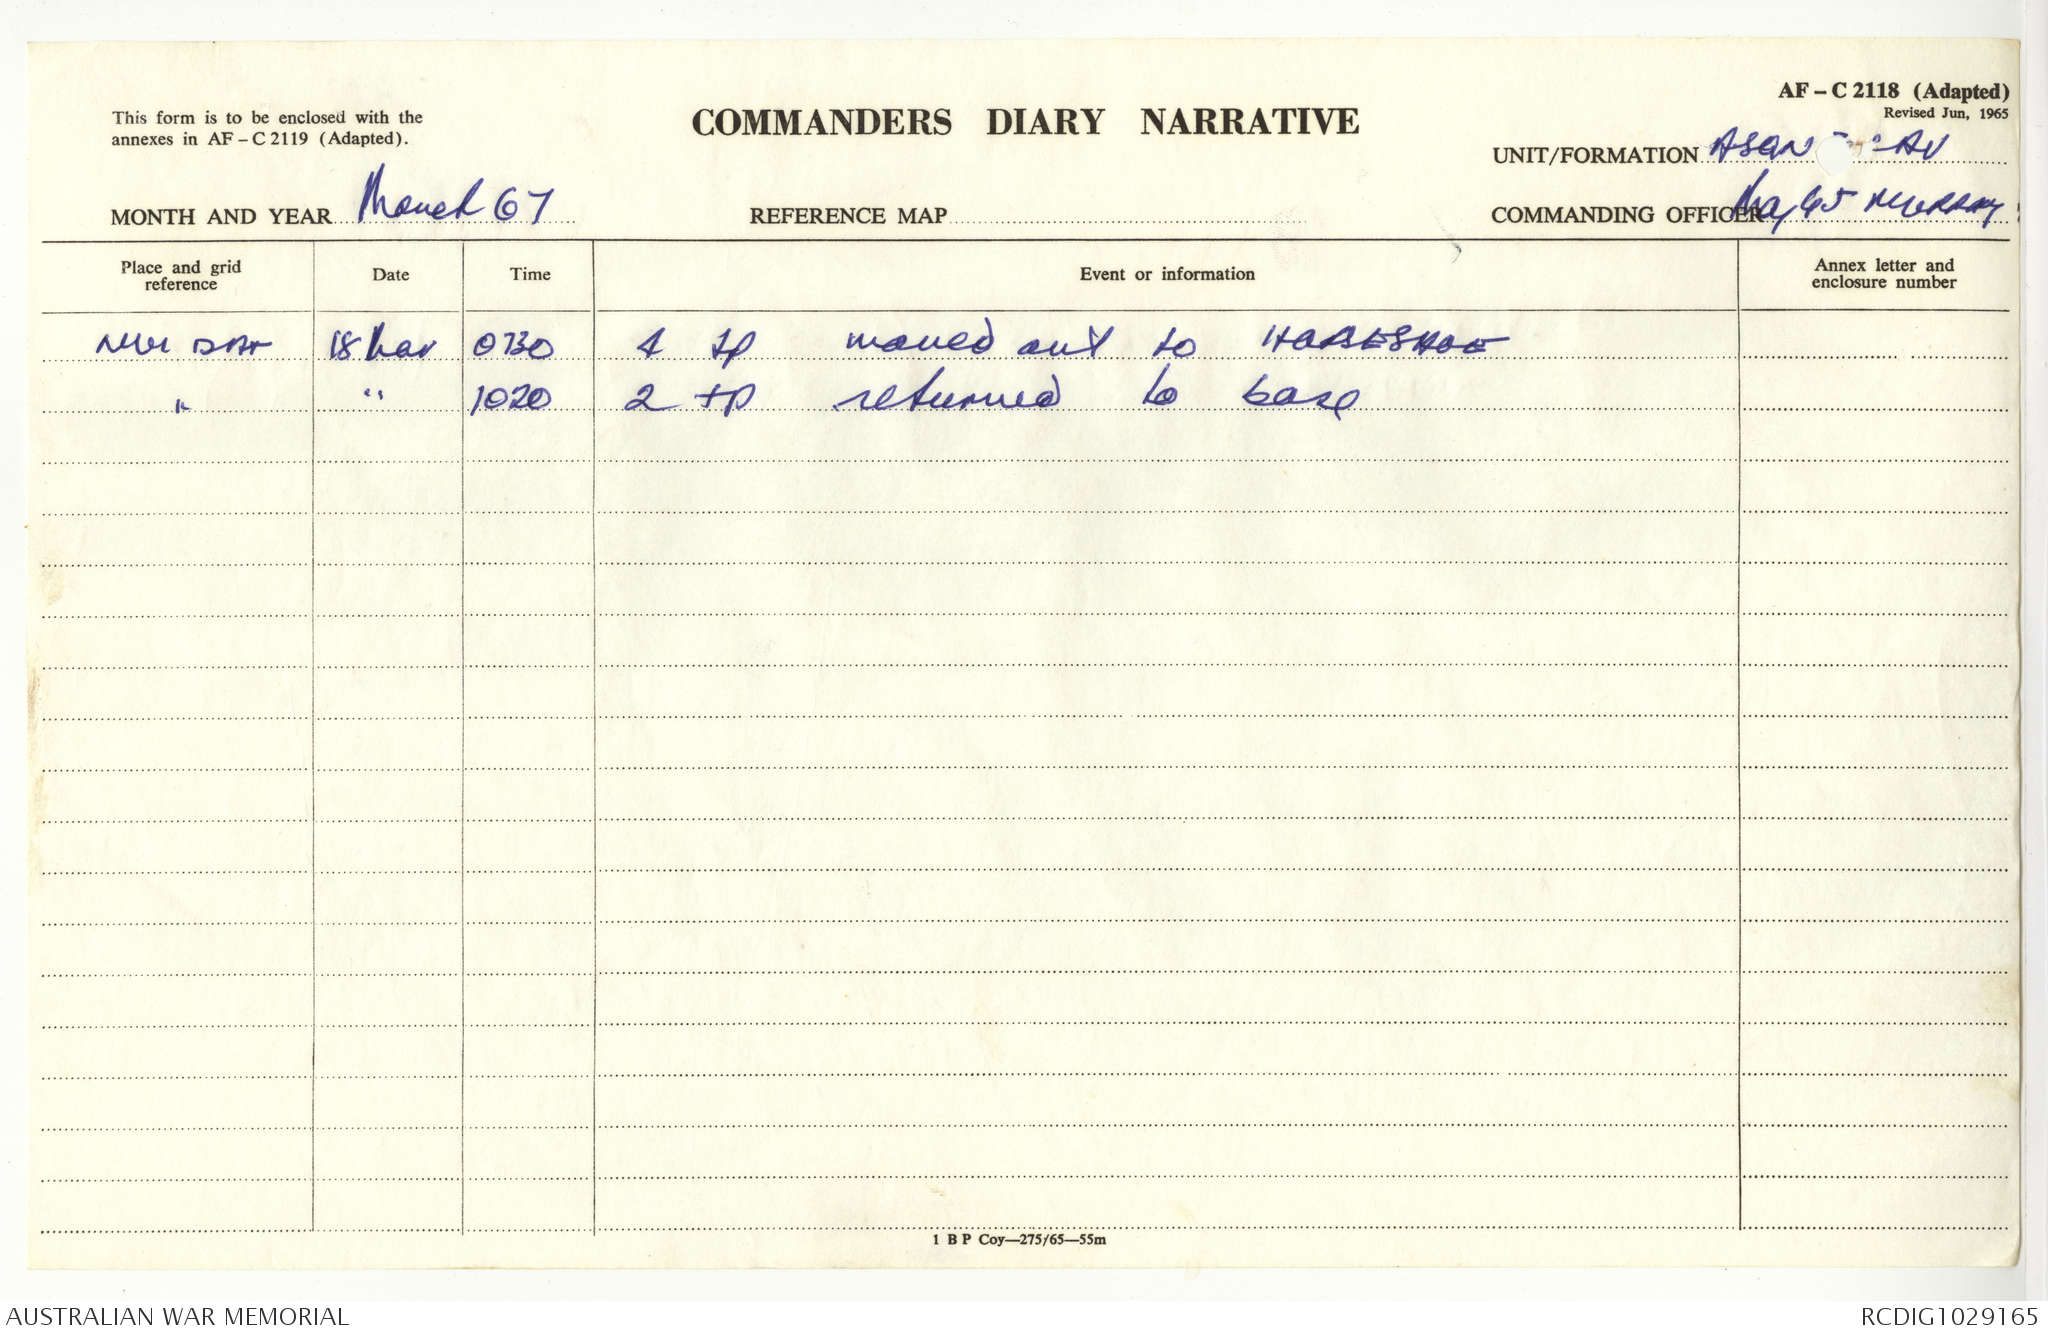 AF – C 2118 (Adapted)
Revised Jun, 1965
This form is to be enclosed with the
annexes in AF – C 2119 (Adapted).
COMMANDERS DIARY NARRATIVE
UNIT/FORMATION ASQN
MONTH AND YEAR March 67
REFERENCE MAP
COMMANDING OFFICER Maj MURRAY
Place and grid
reference
Date
Time
Event or information
Annex letter and
enclosure number
NUI DAT 18 Mar 0730 1 tp moved out to HORSESHOE
" " 1020 2 tp returned to base
1 B P Coy—275/65—55m
AUSTRALIAN WAR MEMORIAL
RCDIG1029165